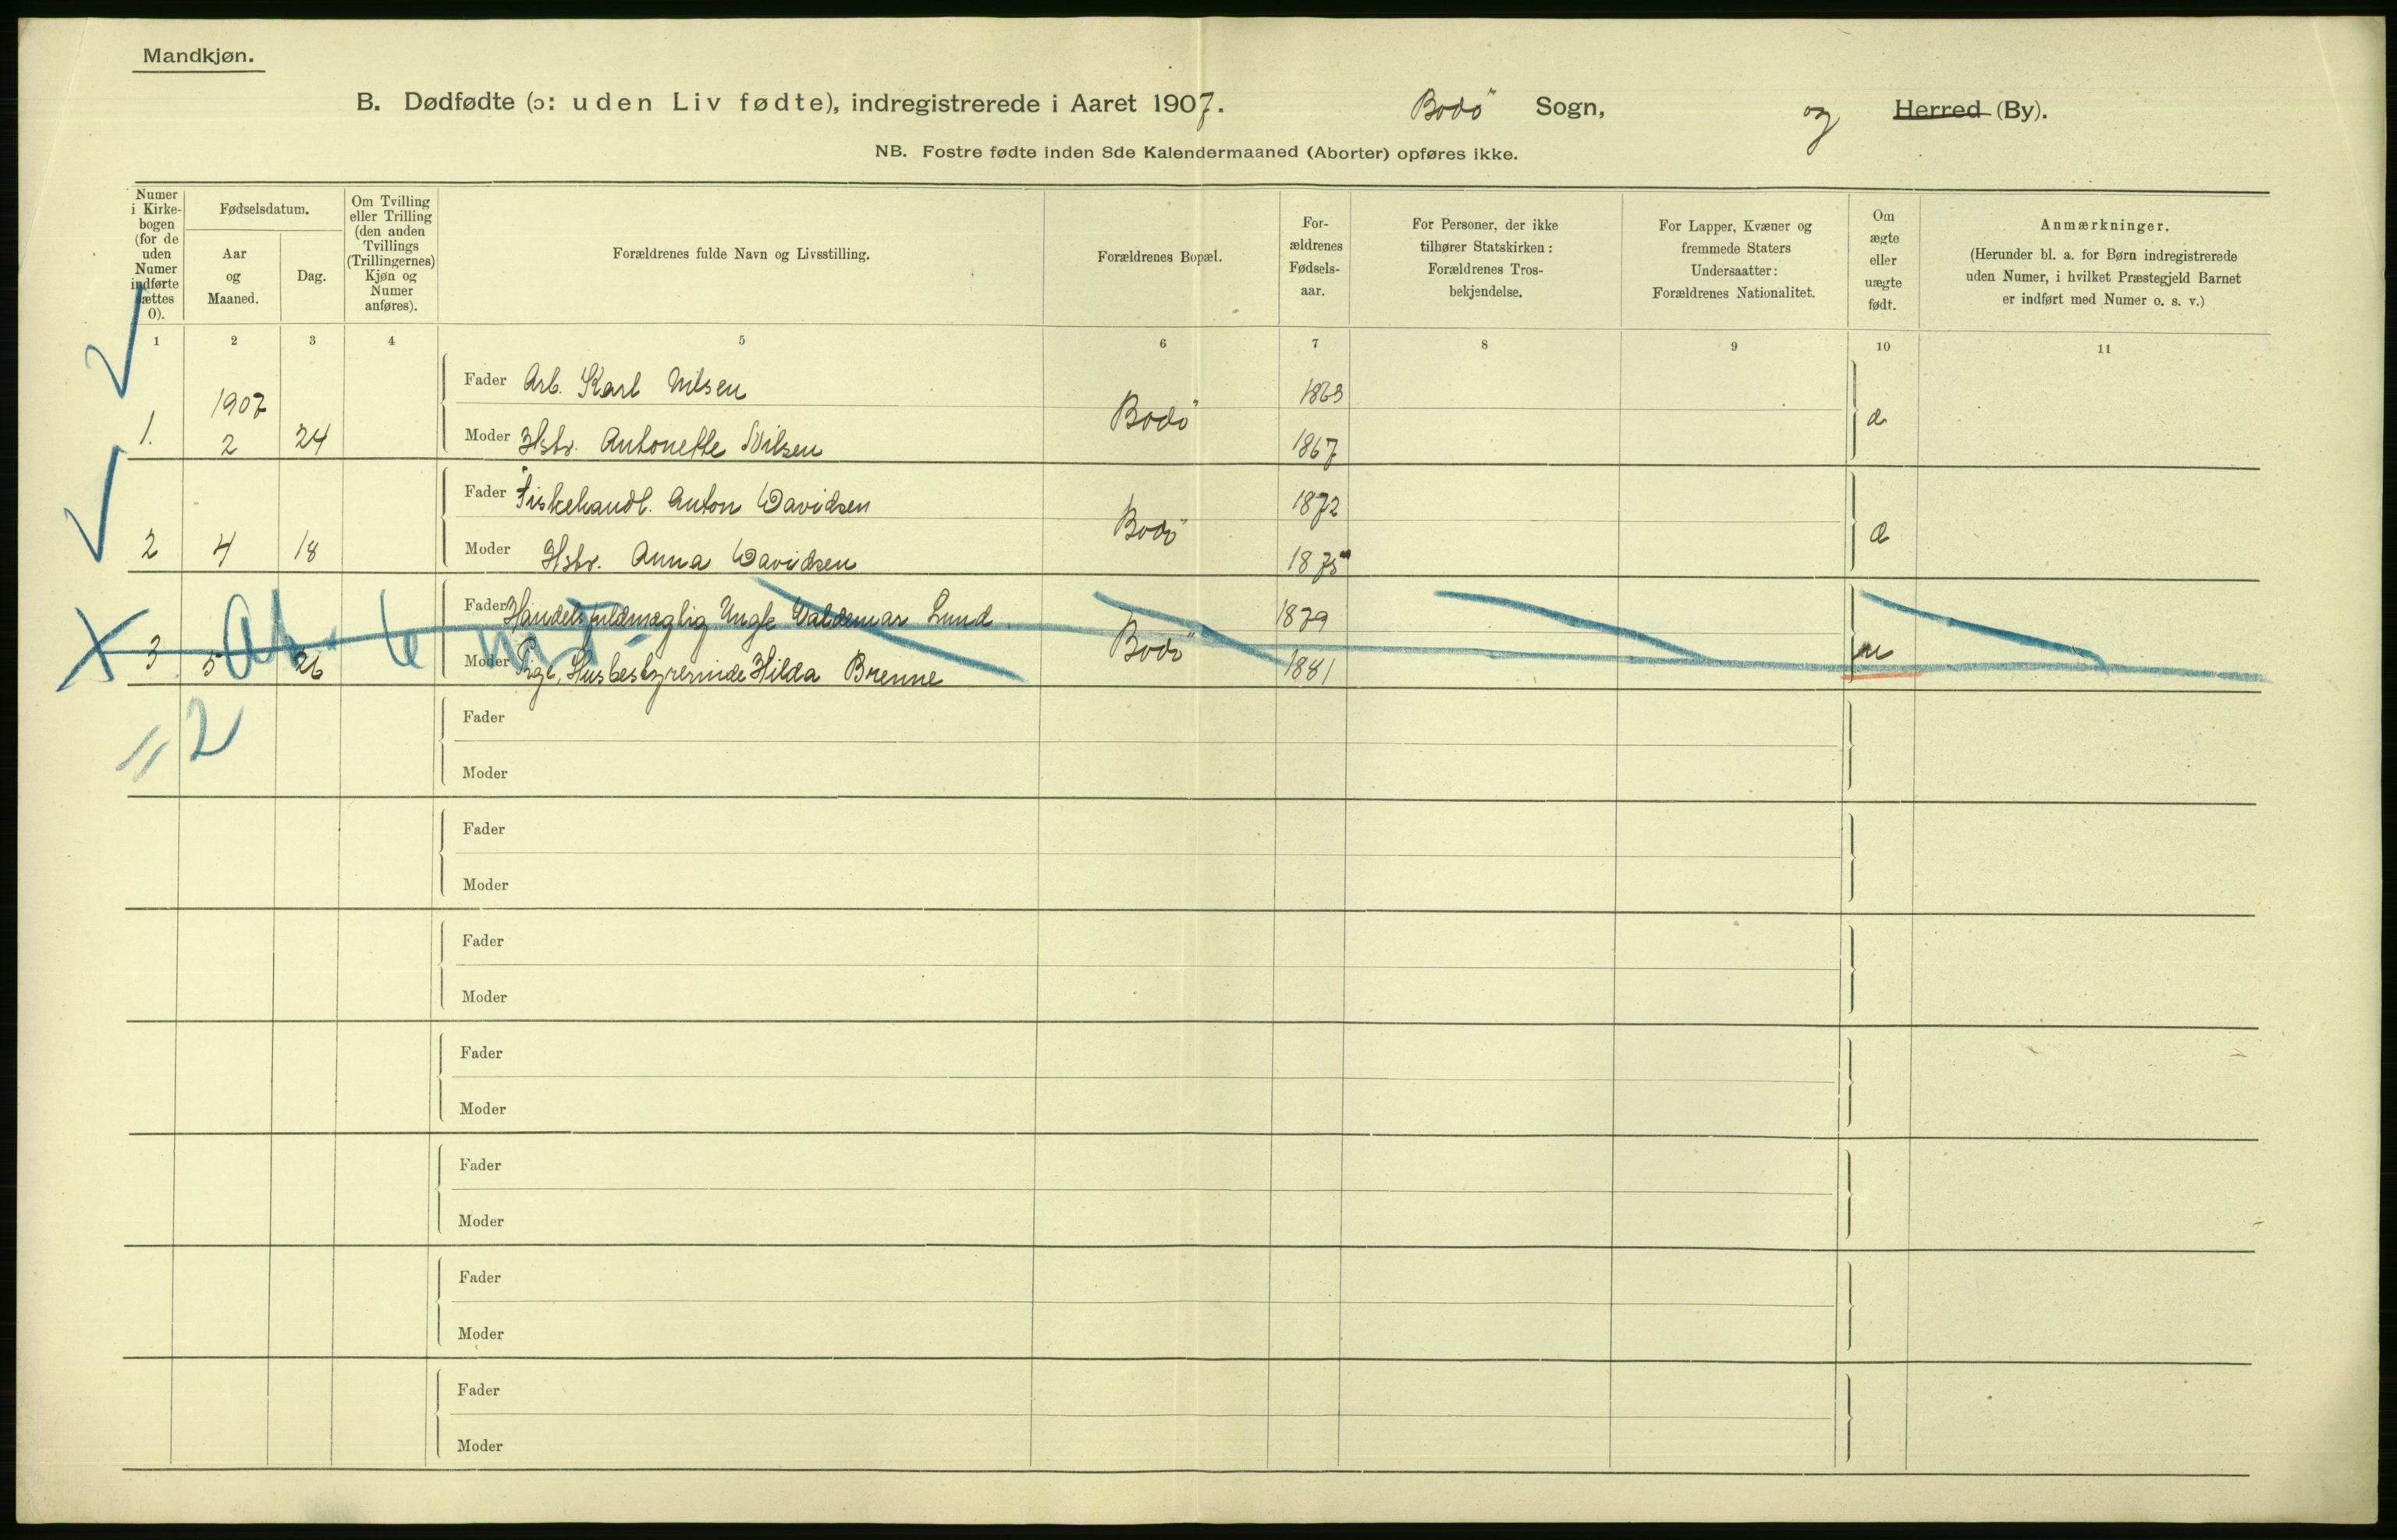 Mandkjøn.
B. Dødfødte (ɔ: uden Liv fødte), indregistrerede i Aaret 1907. Bodö Sogn, og Herred (By).
NB. Fostre fødte inden 8de Kalendermaaned (Aborter) opføres ikke.
Numer i Kirkebogen (for de uden Numer indførte sættes 0).
Fødselsdatum.
Aar og Maaned.
Dag.
Om Tvilling eller Trilling (den anden Tvillings (Trillingernes) Kjøn og Numer anføres).
Forældrenes fulde Navn og Livsstilling.
Forældrenes Bopæl.
For-ældrenes Fødsels-aar.
For Personer, der ikke tilhører Statskirken: Forældrenes Tros-bekjendelse.
For Lapper, Kvæner og fremmede Staters Undersaatter: Forældrenes Nationalitet.
Om ægte eller uægte født.
Anmærkninger. (Herunder bl. a. for Børn indregistrerede uden Numer, i hvilket Præstegjeld Barnet er indført med Numer o. s. v.)
1 2 3 4 5 6 7 8 9 10 11
Fader Arb. Karl Nilsen 1863
1. 1907 2 24 Bodö æ
Moder Hstr. Antonette Nilsen 1867
Fader Fiskehandl. Anton Davidsen 1872
2 4 18 Bodö æ
Moder Hstr. Anna Davidsen 1875
Fader Handelsfuldmægtig Ungk Valdemar Lund 1879
3 5 26 Bodö u
Moder Pige, Husbestyrerinde Hilda Brenne 1881
= 2
Fader
Moder
Fader
Moder
Fader
Moder
Fader
Moder
Fader
Moder
Fader
Moder
Fader
Moder